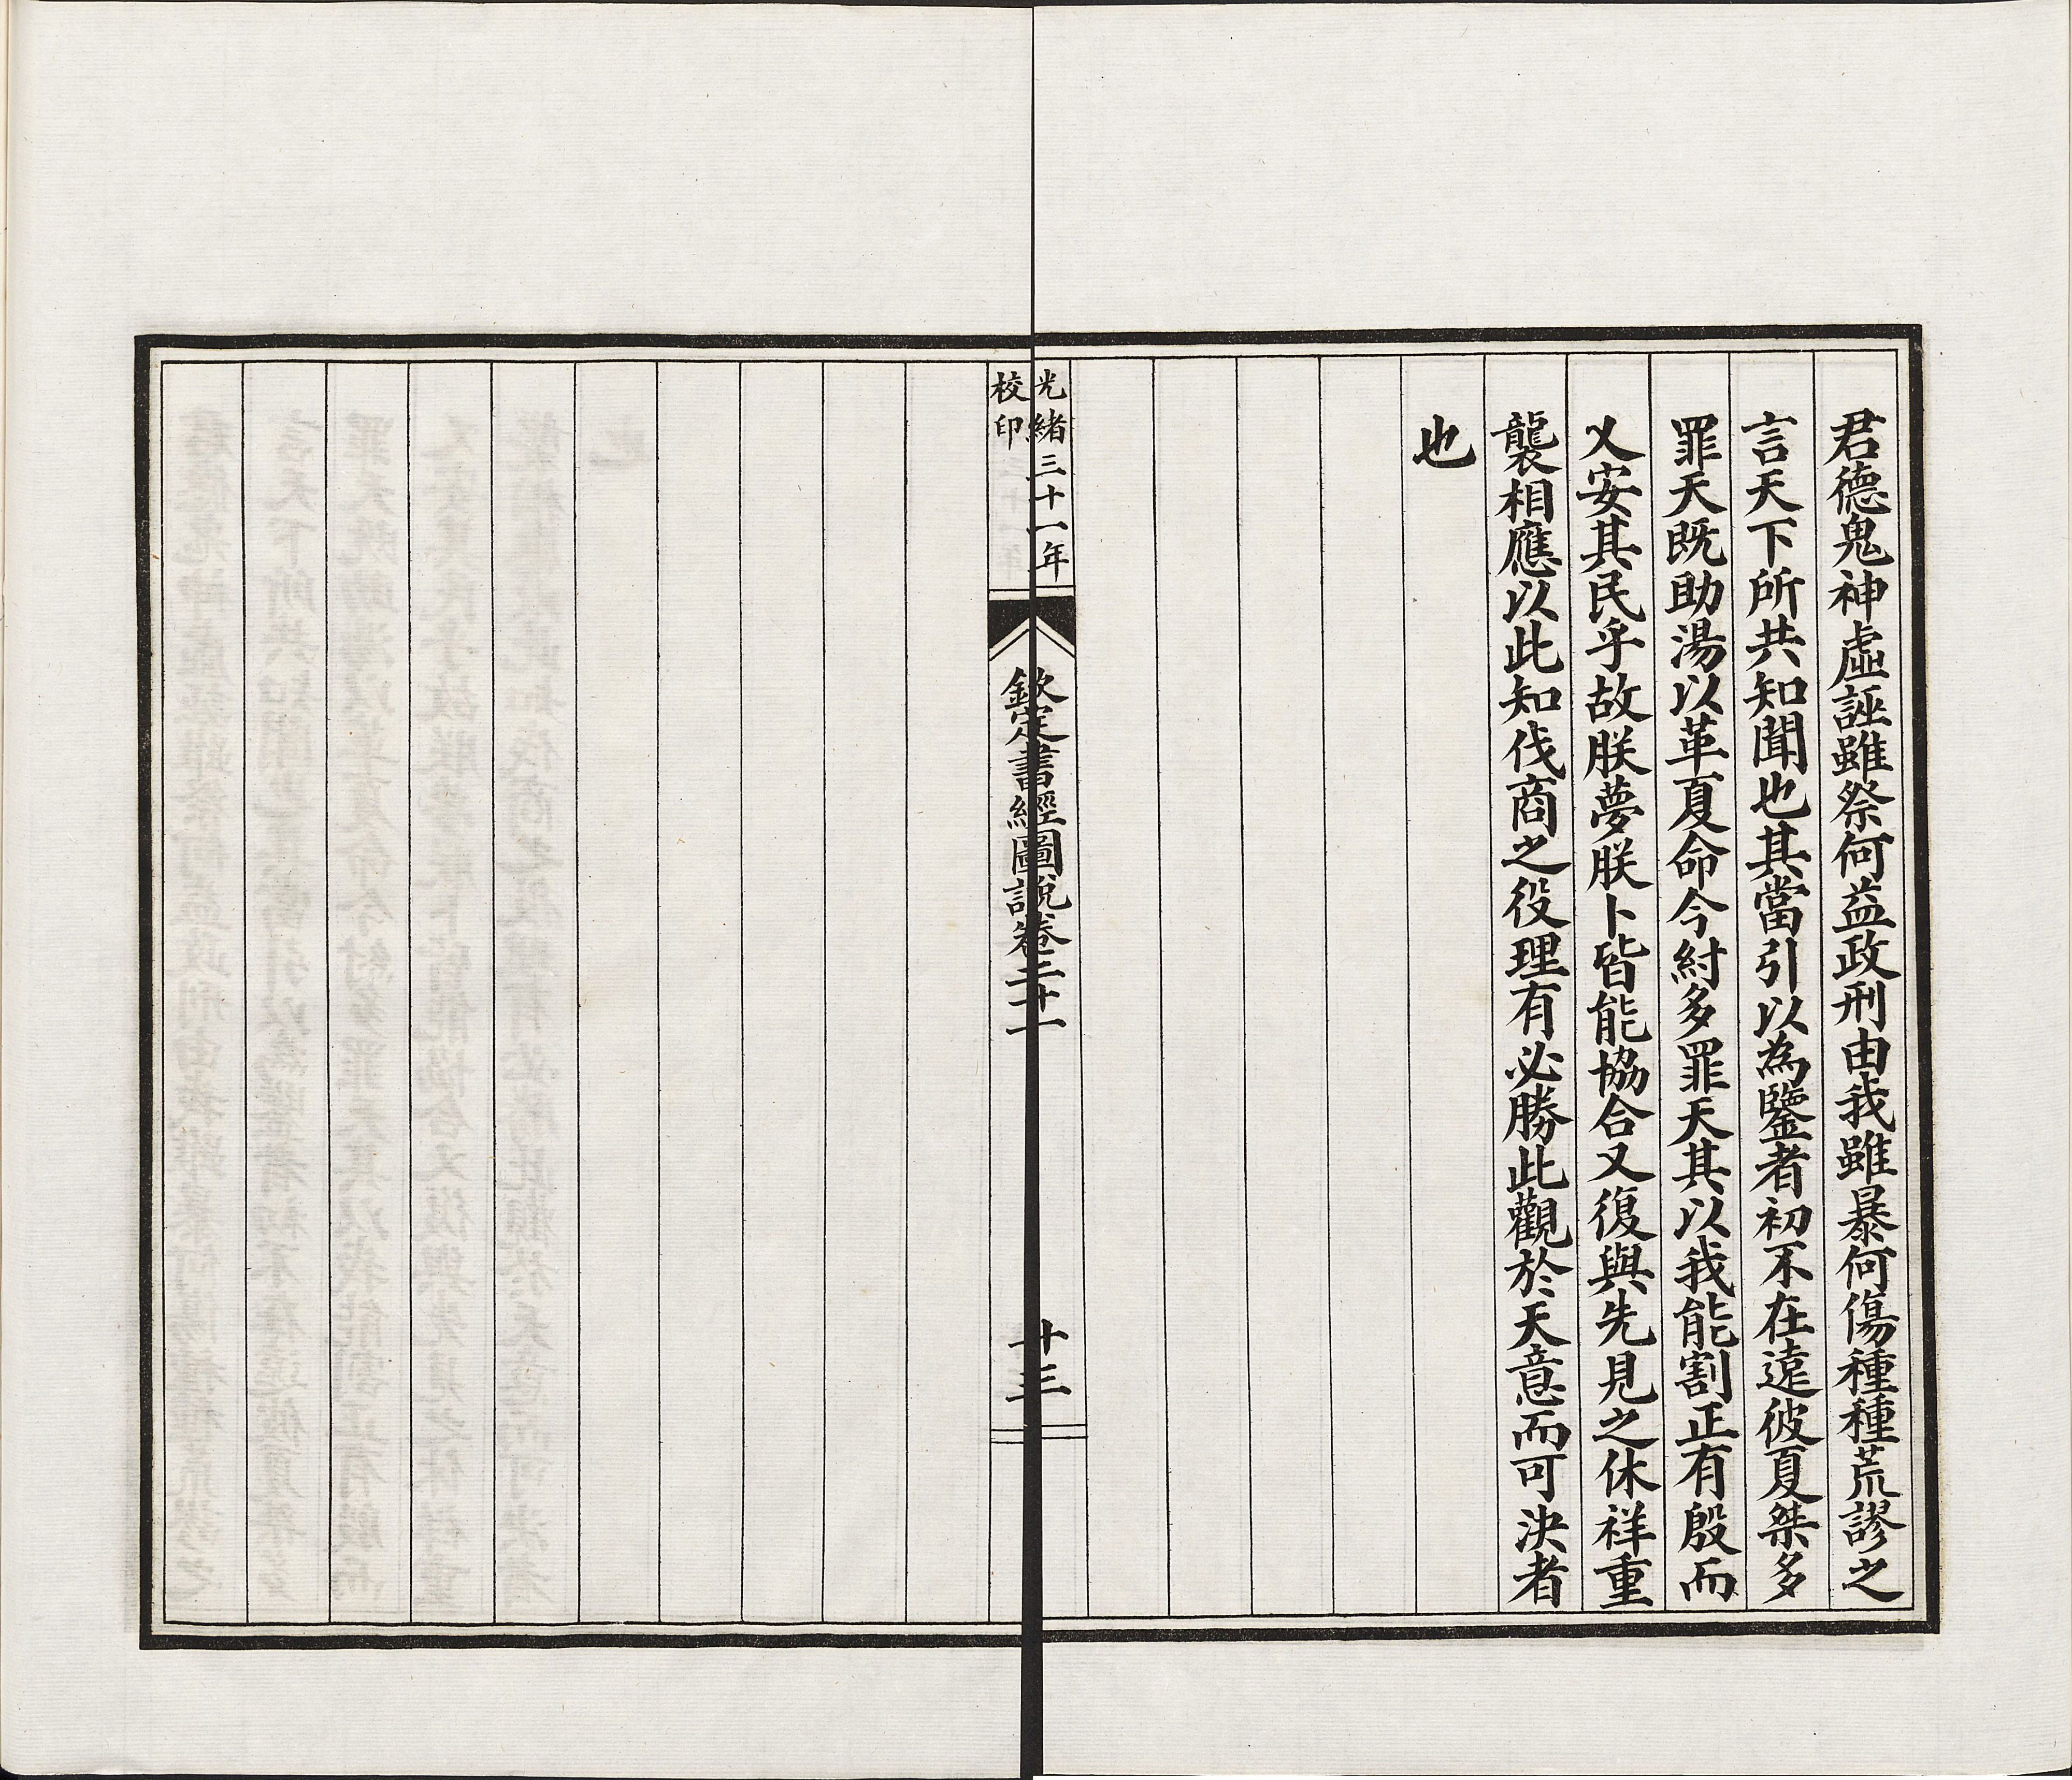 君德鬼神虛誣雖祭何益政刑由我雖暴何傷種種荒謬之
言天下所共知聞也其當引以為鑒者初不在遠彼夏桀多
罪天既助湯以革夏命今紂多罪天其以我能割正有殷而
乂安其民乎故朕夢朕卜皆能協合又復與先見之休祥重
襲相應以此知伐商之役理有必勝此觀於天意而可決者
也
光緒三十一年
校印
欽定書經圖說卷二十一
十三